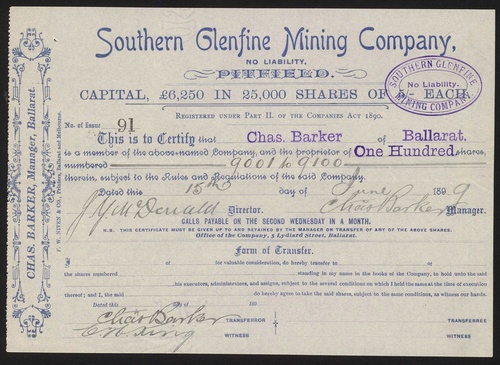 Southern Glenfine Mining Company,
NO LIABILITY,
PITFIELD.
CAPITAL, £6,250 IN 25,000 SHARES OF 5/- EACH
SOUTHERN GLENFINE
No Liability.
MINING COMPANY
REGISTERED UNDER PART II. OF THE COMPANIES ACT 1890.
No. of Issue 91
This is to Certify that Chas. Barker of Ballarat.
is a member of the above-named Company, and the proprietor of One Hundred shares,
numbered 9001 to 9100
therein, subject to the Rules and Regulations of the said Company.
Dated this 15th day of June 1899
Director. Chas Barker Manager.
CALLS PAYABLE ON THE SECOND WEDNESDAY IN A MONTH.
N.B. THIS CERTIFICATE MUST BE GIVEN UP TO AND RETAINED BY THE MANAGER ON TRANSFER OF ANY OF THE ABOVE SHARES.
Office of the Company, 5 Lydiard Street, Ballarat.
Form of Transfer.
of for valuable consideration, do hereby transfer to of
the shares numbered standing in my name in the books of the Company, to hold unto the said
his executors, administrators, and assigns, subject to the several conditions on which I held the same at the time of execution
thereof; and I, the said do hereby agree to take the said shares, subject to the same conditions, as witness our hands.
Dated this day of 189
Chas Barker TRANSFERROR TRANSFEREE
WITNESS WITNESS
CHAS. BARKER, Manager, Ballarat.
F. W. NIVEN & CO., Printers, Ballarat and Melbourne.